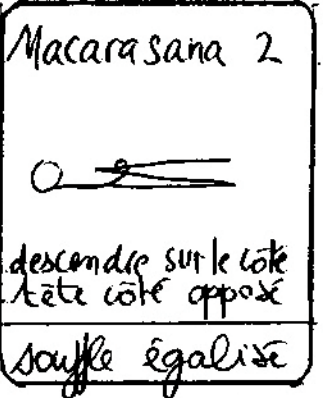 Macarasana 2
descendre sur le côté
tête côté opposé
souffle égalisé